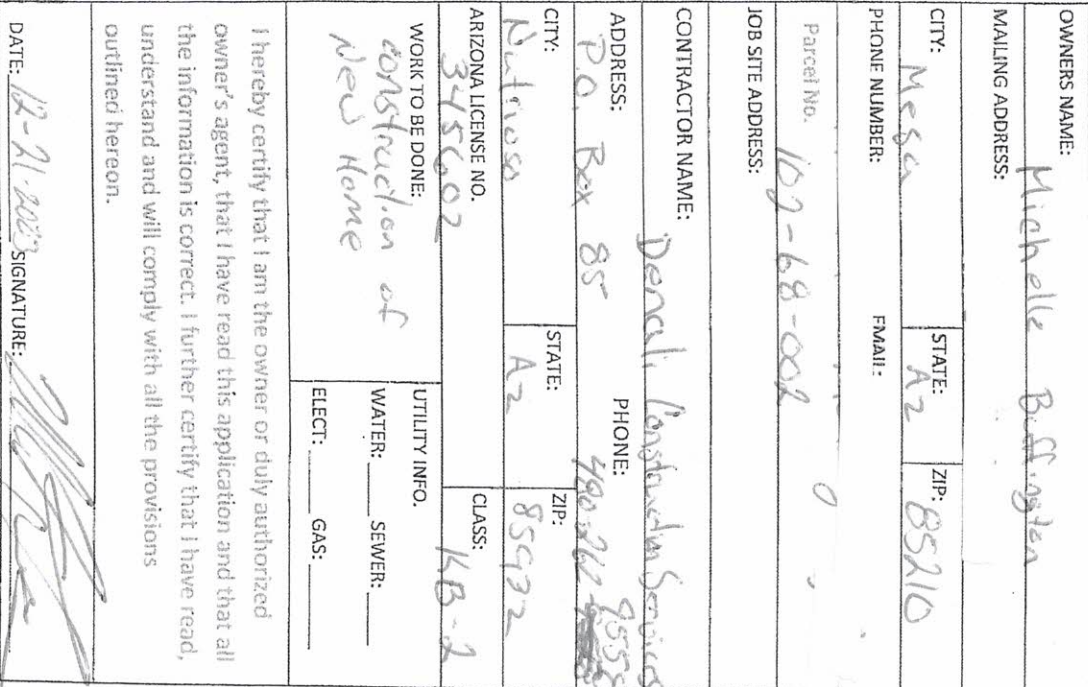 OWNERS NAME: Michelle Buffington
MAILING ADDRESS:
CITY: Mesa STATE: Az ZIP: 85210
PHONE NUMBER: EMAIL:
Parcel No. 102-68-002
JOB SITE ADDRESS:
CONTRACTOR NAME: Denali Construction Services
ADDRESS: P.O Box 85 PHONE:
CITY: Nutrioso STATE: Az ZIP: 85932
ARIZONA LICENSE NO. 345602 CLASS: KB-2
WORK TO BE DONE: UTILITY INFO.
construction of WATER: SEWER:
New Home ELECT: GAS:
I hereby certify that I am the owner or duly authorized
owner's agent, that I have read this application and that all
the information is correct. I further certify that I have read,
understand and will comply with all the provisions
outlined hereon.
DATE: 12-21-2023 SIGNATURE: